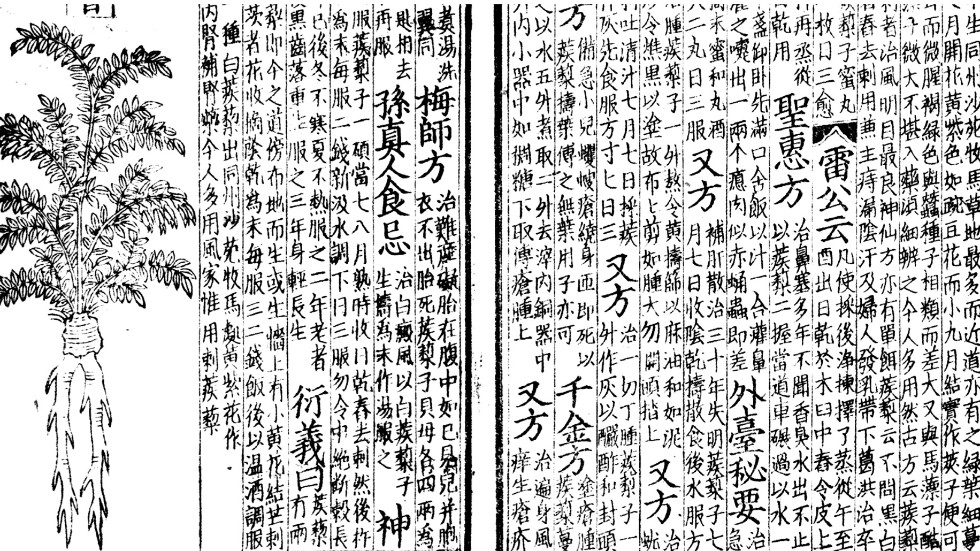 生同州沙苑牧馬草地最多而近道亦有之綠葉細蔓
月開花黃紫色如豌豆花而小九月結實作莢子便可
白而微腥褐綠色與蠶種子相類而差大又與馬薸子酷
子微大不堪入藥須細辨之今人多用然古方云蒺藜
者治風明目最良神仙方亦有單餌蒺藜云不問黑白
舂去刺用兼主痔漏陰汗及婦人發乳帶下葛洪治卒
蒺藜子蜜丸
枚日三愈
雷公云
凡使採後淨揀擇了蒸從午至
酉出日乾於木臼中舂令皮上
再蒸從
日乾用
聖惠方
治鼻塞多年不聞香臭水出不止
以蒺藜二握當道車碾過以水一
盞仰臥先滿口含飯以汁一合灌鼻
之嚏出一兩个瘜肉似赤蛹蟲即差
外臺秘要
治
急
末蜜和丸酒
二丸日三服
又方
補肝散治三十年失明蒺藜子七
月七日收陰乾擣散食後水服方
腫蒺藜子一升熬令黃擣篩以麻油和如泥
令燋黑以塗故布上剪如腫大勿開頭搨上
又方
吐清汁七月七日採蒺
先食服方寸匕日三
又方
治一切丁腫蒺藜子一
升作灰以釅酢和封頭
方
備急小兒蠼螋瘡繞身匝即死以
蒺藜擣葉傅之無葉用子亦可
千金方
塗瘡腫
蒺藜蔓
之以水五升煮取二升去滓內銅器中
內小器中如稠糖下取傅瘡腫上
又方
治遍身風
痒生瘡疥
煮湯洗
同
梅師方
治難產礙胎在腹中如已見兒并胞
衣不出胎死蒺藜子貝母各四兩為
相去
再服
孫真人食忌
治白癜風以白蒺藜子
生擣為末作湯服之
神
服蒺藜子一碩當七八月熟時收日乾舂去刺然後杵
為末每服二錢新汲水調下日三服勿令中絕斷穀長
已後冬不寒夏不熱服之二年老者
黑齒落更生服之三年身輕長生
衍義曰
蒺藜
有兩
即今之道傍布地而生或生墻上有小黃花結芒刺
種白蒺藜出同州沙苑牧馬處黃紫花作
莢者花收摘陰乾為末每服三二錢飯後以溫酒調服
內腎補腎藥今人多用風家惟用刺蒺藜